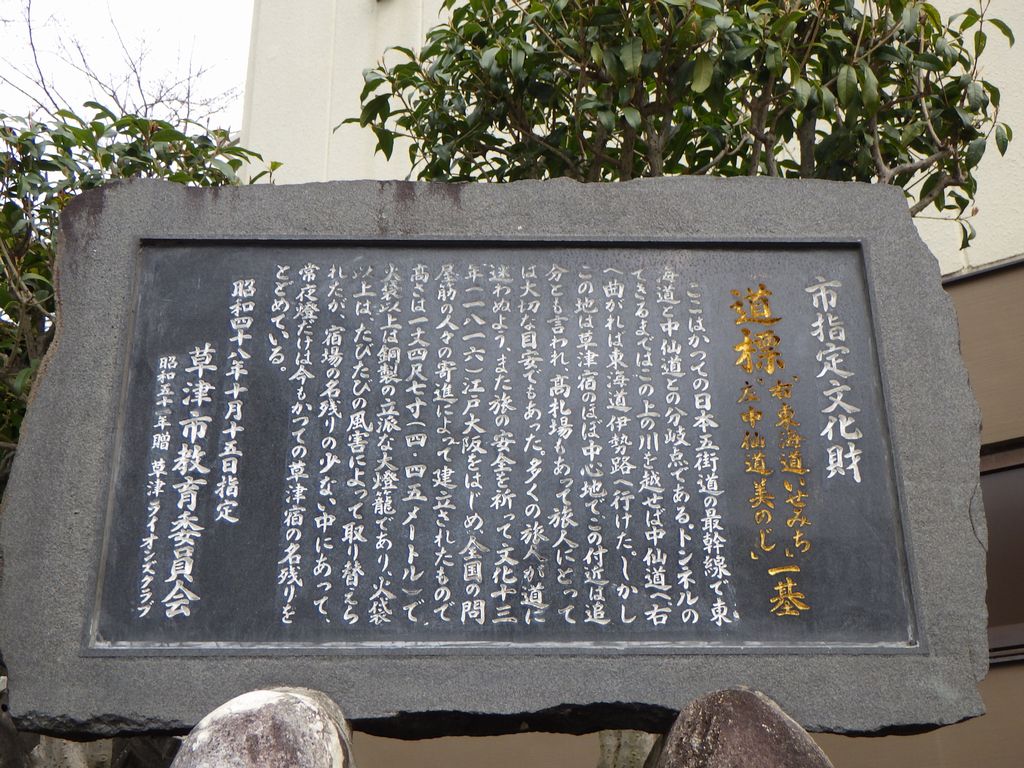 市指定文化財
道標 「右東海道いせみち」「左中仙道美のじ」一基
ここはかつての日本五街道の最幹線で東
海道と中仙道との分岐点である。トンネルの
できるまでは、この上の川を越せば中仙道へ、右
へ曲がれば東海道伊勢路へ行けた。しかし
この地は草津宿のほぼ中心地で、この付近は追
分とも言われ、高札場もあって旅人にとって
は大切な目安でもあった。多くの旅人が道に
迷わぬよう、また旅の安全を祈って文化十三
年(一八一六)江戸大阪をはじめ、全国の問
屋筋の人々の寄進によって建立されたもので
高さは一丈四尺七寸(四・四五メートル)で、
火袋以上は銅製の立派な大燈籠であり、火袋
以上は、たびたびの風害によって取り替えら
れたが、宿場の名残りの少ない中にあって、
常夜燈だけは今もかつての草津宿の名残りを
とどめている。
昭和四十八年十月十五日指定
草津市教育委員会
昭和五十一年贈 草津ライオンズクラブ